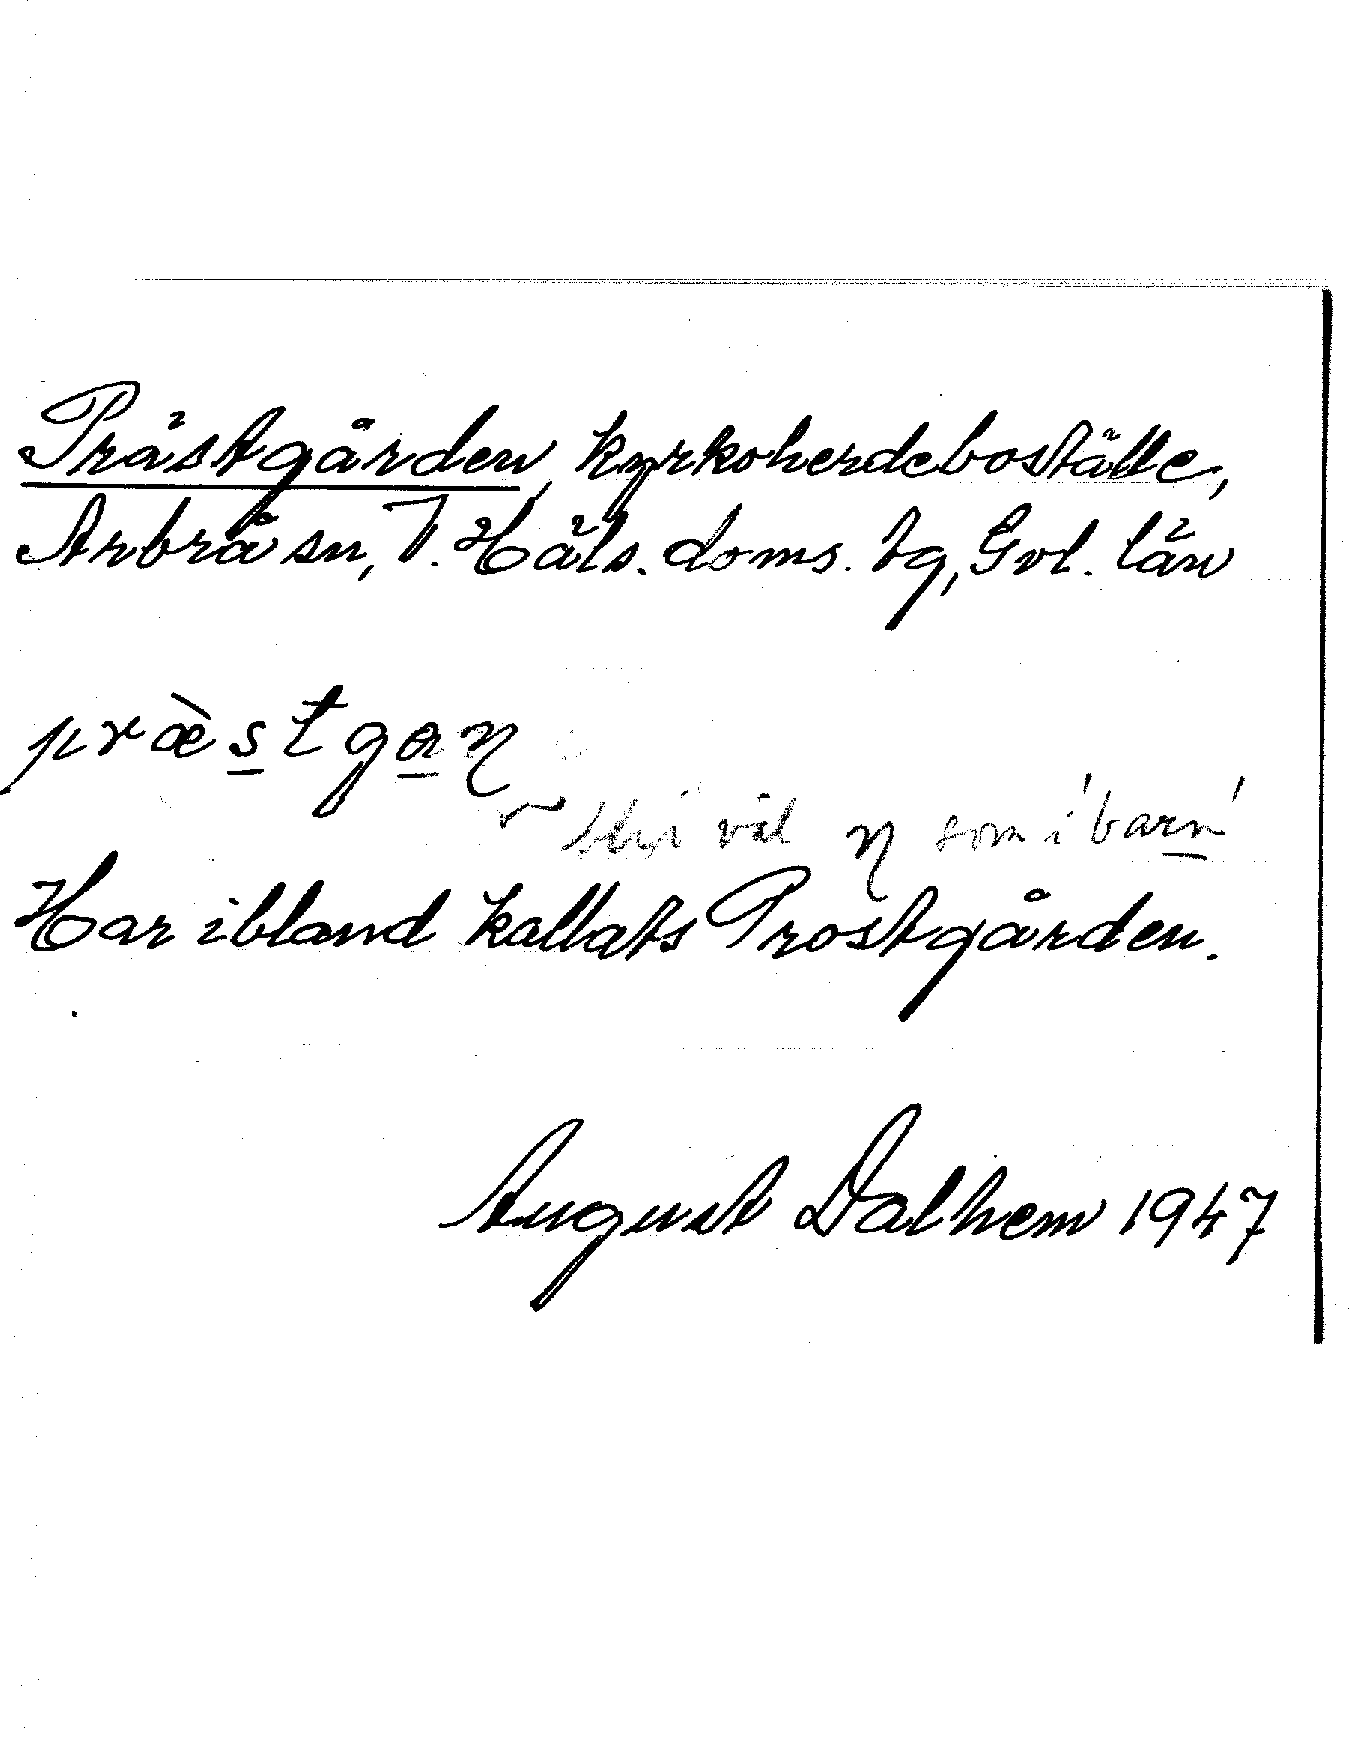 Prästgården, kyrkoherdeboställe,
Arbrå sn, V. Häls. doms. tg, Gvl. län
præ̀s̲tga̲ɳ
blir väl ɳ som i 'barn'
Har ibland kallats Prostgården.
August Dalhem 1947